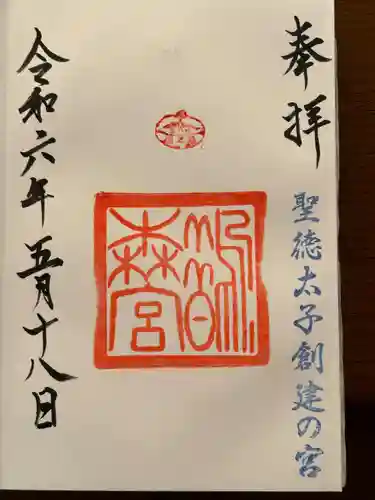 奉拝
聖徳太子創建の宮
鵲森宮
令和六年五月十八日